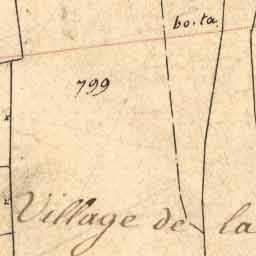 bo.ta
799
Village de la